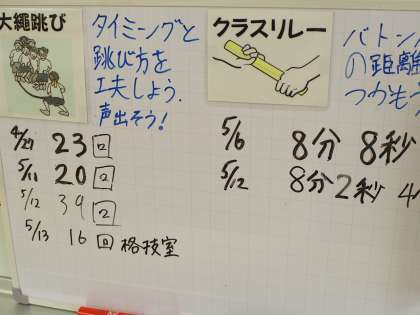 大縄跳び
タイミングと
跳び方を
工夫しよう.
声出そう!
4/27 23回
5/11 20回
5/12 39回
5/13 16回 格技室
クラスリレー
バトン
の距離
つかもう
5/6 8分 8秒
5/12 8分2秒